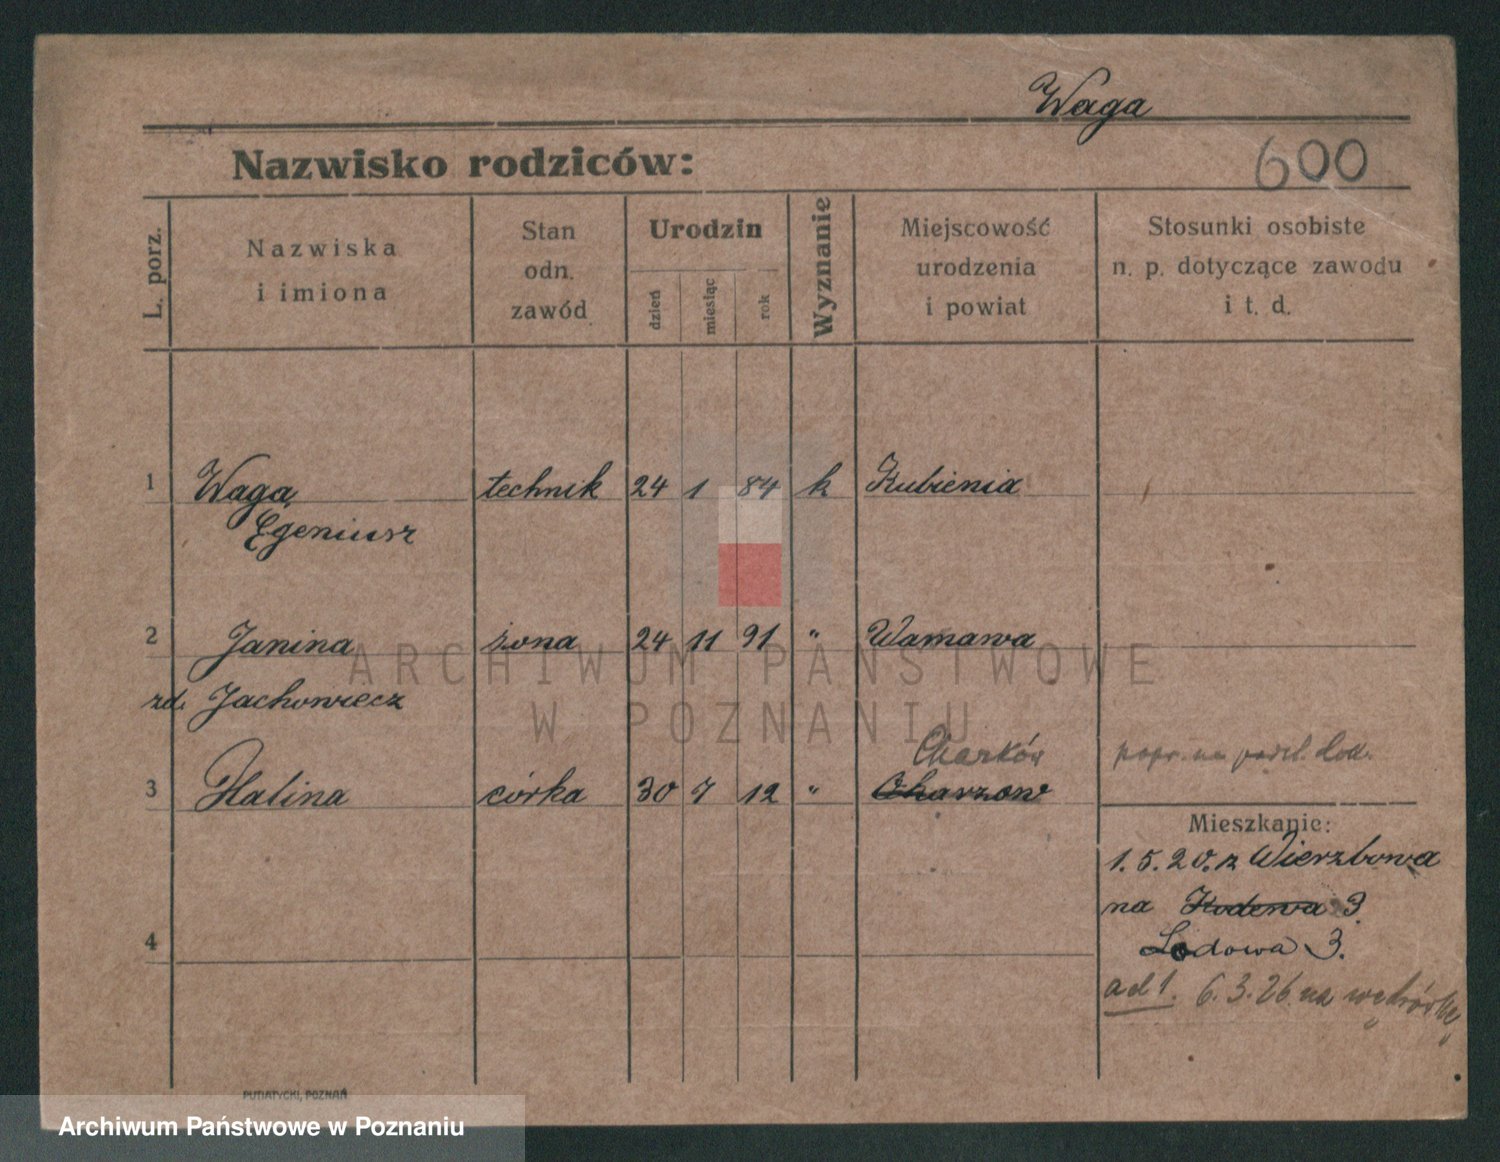 Waga
Nazwisko rodziców:
600
L. porz.
Nazwiska
i imiona
Stan
odn.
zawód
Urodzin
dzień
miesiąc
rok
Wyznanie
Miejscowość
urodzenia
i powiat
Stosunki osobiste
n. p. dotyczące zawodu
i t. d.
1 Waga technik 24 1 84 k Rubienia
Egeniusz
2 Janina żona 24 11 91 " Warnawa
zd. Jachowiecz
Charków popr. na
3 Halina córka 30 7 12 " Charzow
Mieszkanie:
1.5.20. z Wierzbowa
na 3
Lodowa 3.
4
ad 1. 6.3.26. na wędrówkę
ARCHIWUM PAŃSTWOWE
W POZNANIU
PUTIATYCKI, POZNAŃ
Archiwum Państwowe w Poznaniu